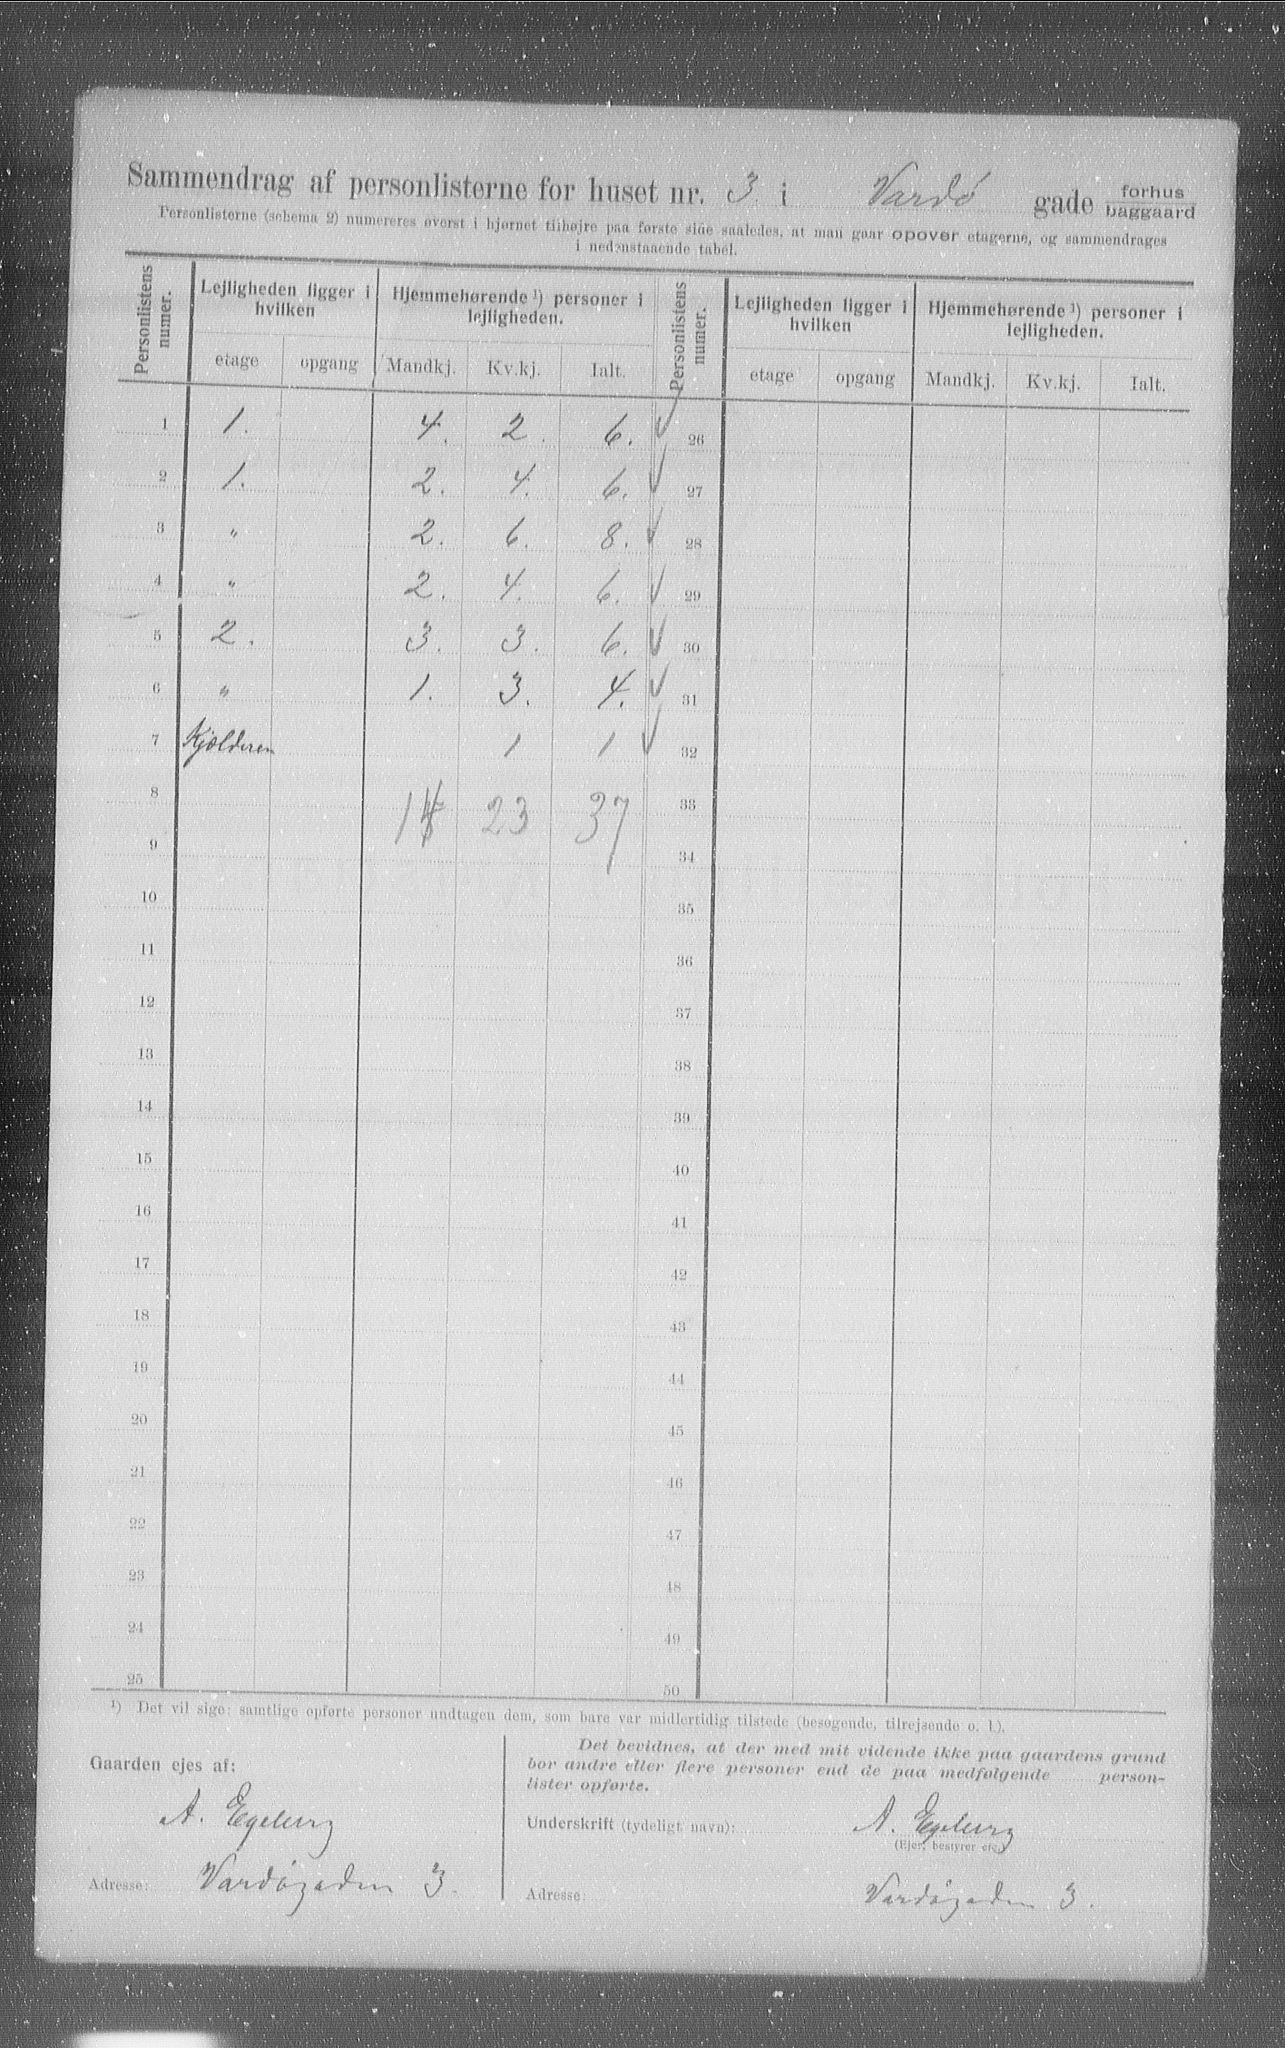 Sammendrag af personlisterne for huset nr. 3. i Vardø gade forhus baggaard
Personlisterne (schema 2) numereres øverst i hjørnet tilhøjre paa første side saaledes, at man gaar opover etagerne, og sammendrages
i nedenstaaende tabel.
Personlistens numer. Lejligheden ligger i hvilken Hjemmehørende ¹) personer i lejligheden. Personlistens numer. Lejligheden ligger i hvilken Hjemmehørende ¹) personer i lejligheden.
etage opgang Mandkj. Kv.kj. Ialt. etage opgang Mandkj. Kv.kj. Ialt.
1 1. 4. 2. 6. ✓ 26
2 1. 2. 4. 6. ✓ 27
3 " 2. 6. 8. ✓ 28
4 " 2. 4. 6. ✓ 29
5 2. 3. 3. 6. ✓ 30
6 " 1. 3. 4. ✓ 31
7 Kjælderen 1 1 ✓ 32
8 14 23 37 33
9 34
10 35
11 36
12 37
13 38
14 39
15 40
16 41
17 42
18 43
19 44
20 45
21 46
22 47
23 48
24 49
25 50
¹) Det vil sige: samtlige opførte personer undtagen dem, som bare var midlertidig tilstede (besøgende, tilrejsende o. l.).
Gaarden ejes af:
A. Egeberg
Adresse: Vardøgaden 3.
Det bevidnes, at der med mit vidende ikke paa gaardens grund
bor andre eller flere personer end de paa medfølgende person-
lister opførte.
Underskrift (tydeligt navn): A. Egeberg
(Ejer, bestyrer etc.)
Adresse: Vardøgaden 3.